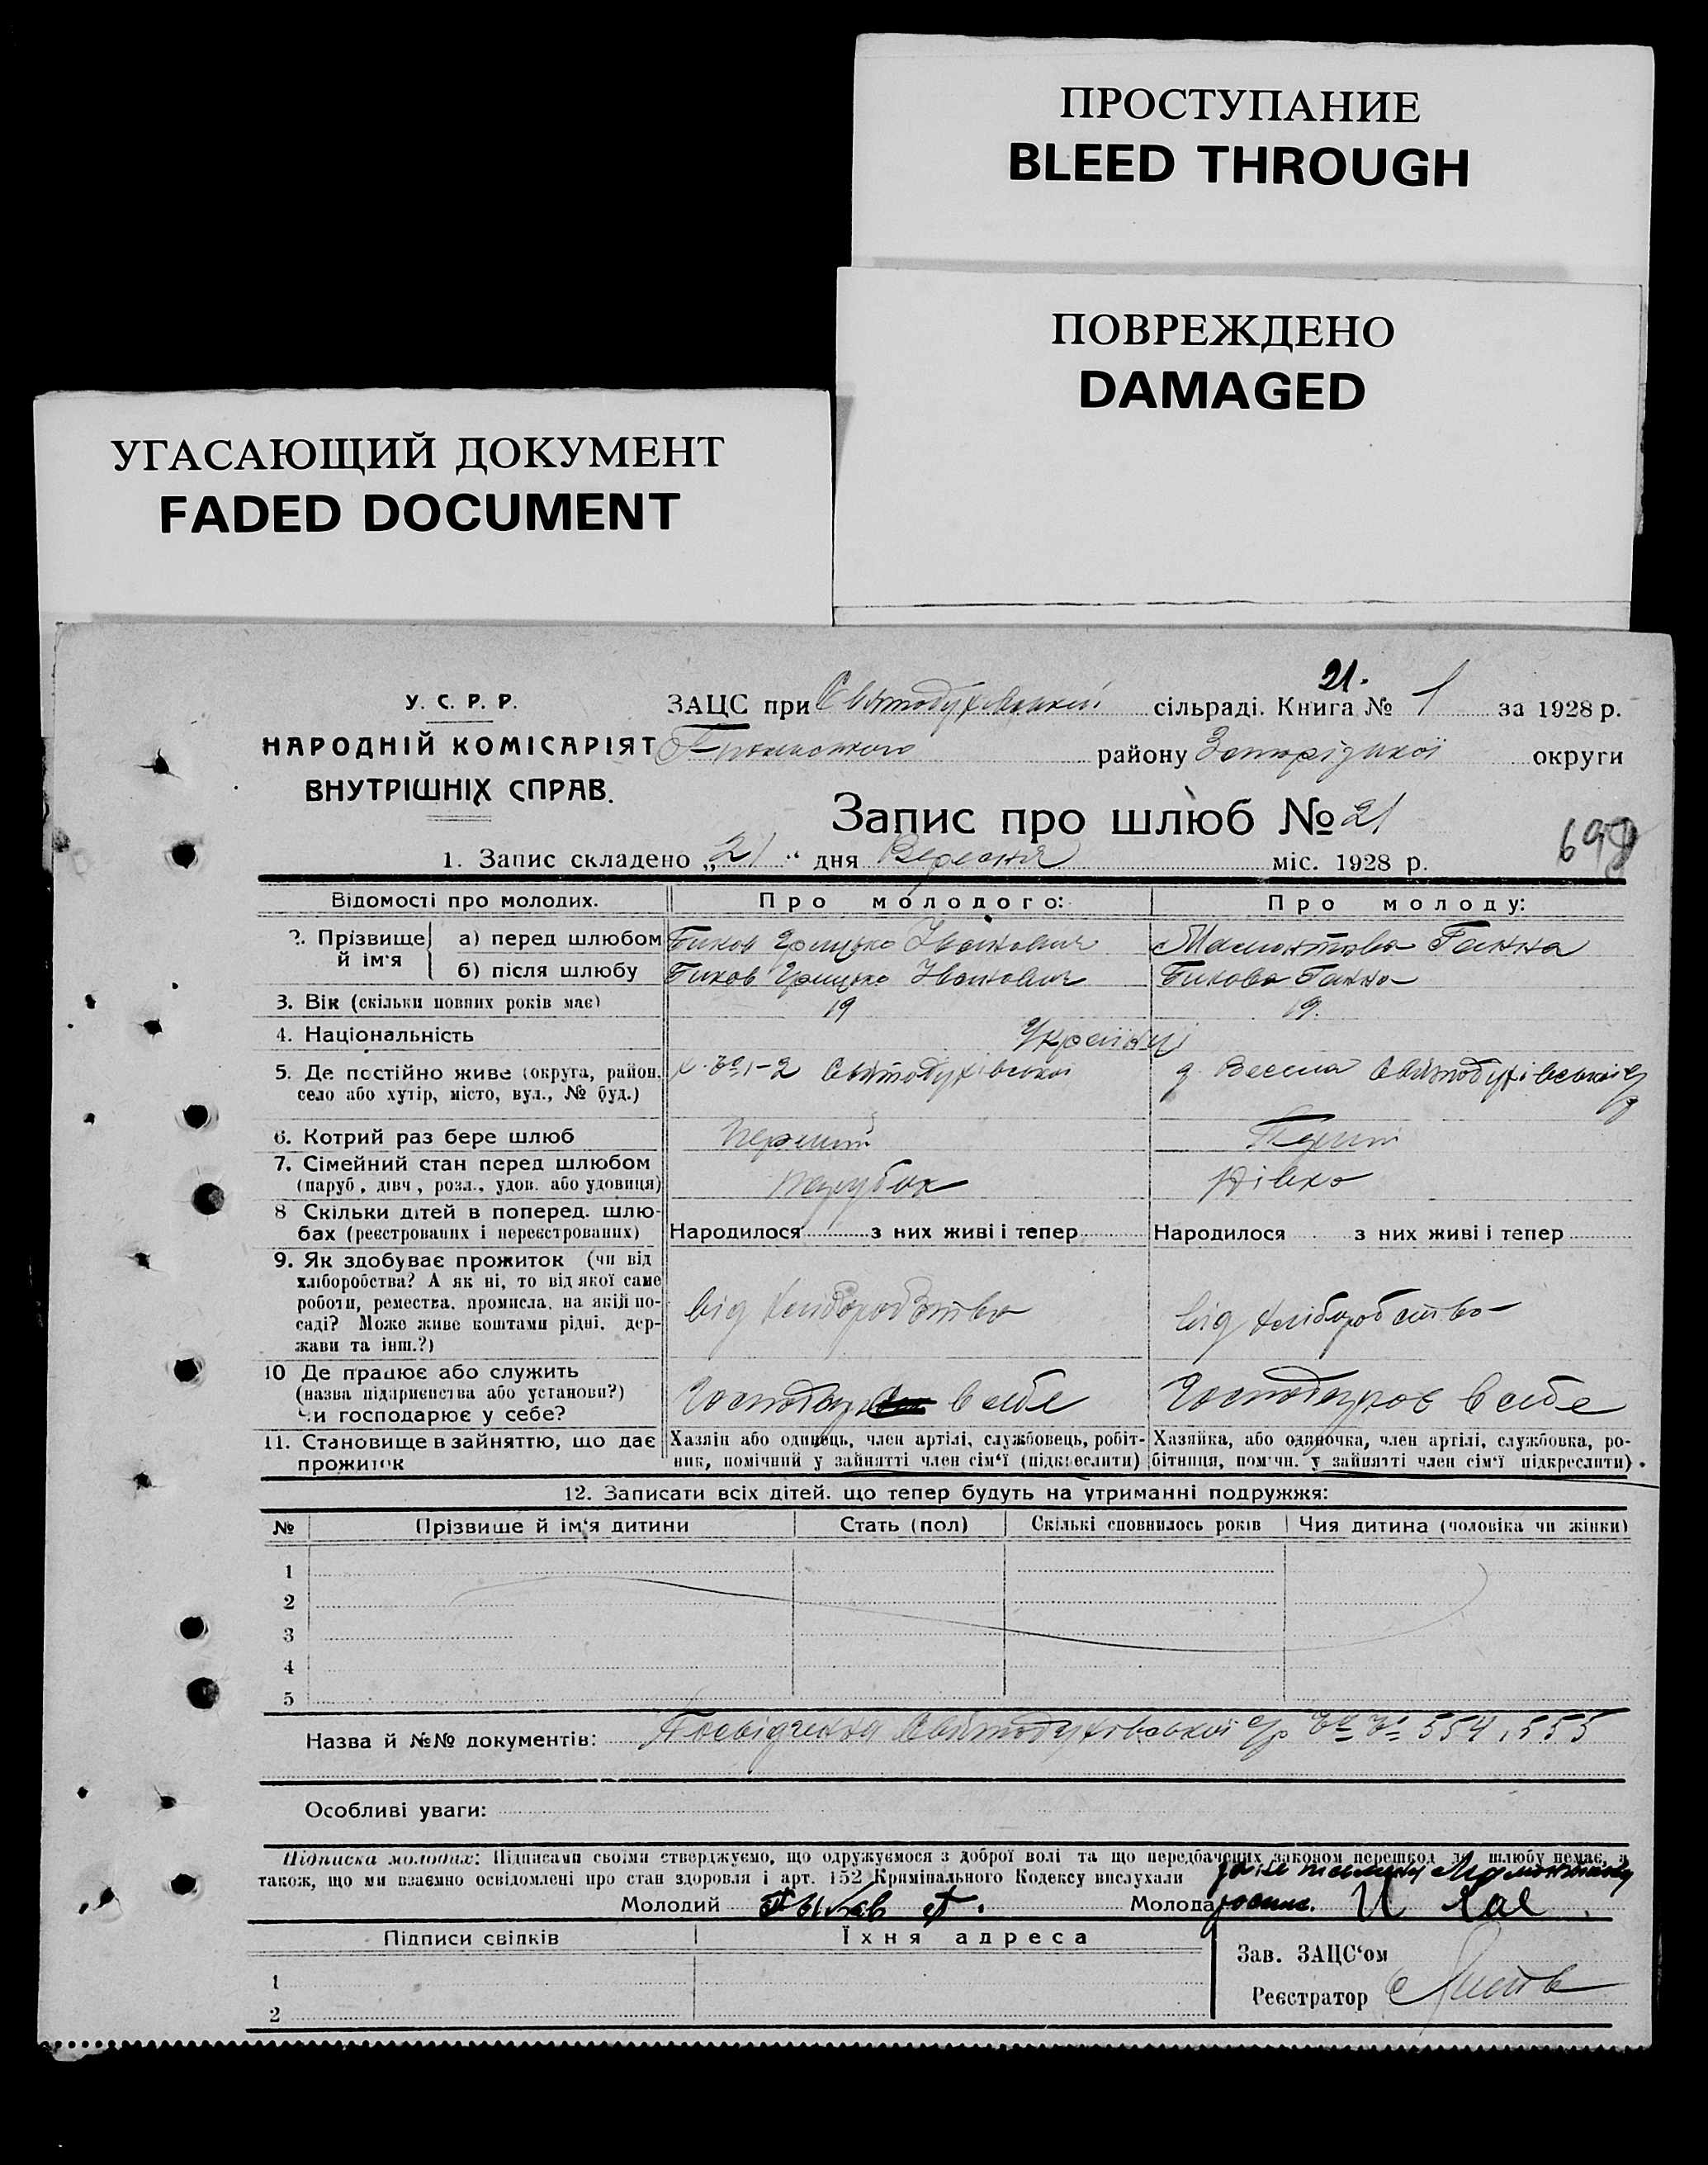 ПРОСТУПАНИЕ
BLEED THROUGH
ПОВРЕЖДЕНО
DAMAGED
УГАСАЮЩИЙ ДОКУМЕНТ
FADED DOCUMENT
21.
У. С. Р. Р.
НАРОДНІЙ КОМІСАРІЯТ
ВНУТРІШНІХ СПРАВ.
ЗАЦС при Святодухівській сільраді. Книга № 1 за 1928 р.
району Запорізької округи
Запис про шлюб № 21
698
1. Запис складено „21“ дня Вересня міс. 1928 р.
Відомості про молодих. Про молодого: Про молоду:
2. Прізвище й ім'я а) перед шлюбом Биков Грицько Іванович Мамонтова Ганна
б) після шлюбу Биков Грицько Іванович Бикова Ганна
3. Вік (скільки повних років має) 19 19.
4. Національність Українці
5. Де постійно живе (округа, район. Святодухівської с. Весела Святодухівської с/р
село або хутір, місто, вул., № буд.)
6. Котрий раз бере шлюб перший Перший
7. Сімейний стан перед шлюбом парубок дівка
(паруб., дівч., розл., удов. або удовиця)
8 Скільки дітей в поперед. шлю-
бах (реєстрованих і нереєстрованих) Народилося з них живі і тепер Народилося з них живі і тепер
9. Як здобуває прожиток (чи від
хліборобства? А як ні, то від якої саме
роботи, ремества, промисла, на якій по- від хліборобства від хліборобства
саді? Може живе коштами рідні, дер-
жави та інш.?)
10 Де працює або служить
(назва підприємства або установи?) в себе Господарює в себе
Чи господарює у себе?
11. Становище в зайняттю, що дає прожиток
Хазяїн або одинець, член артілі, службовець, робіт-
ник, помічний у зайнятті член сім'ї (підкреслити)
Хазяйка, або одиночка, член артілі, службовка, ро-
бітниця, поміч. у зайнятті член сім'ї підкреслити).
12. Записати всіх дітей. що тепер будуть на утриманні подружжя:
№ Прізвише й ім'я дитини Стать (пол) Скількі сповнилось років Чия дитина (чоловіка чи жінки)
1
2
3
4
5
Назва й №№ документів: Посвідчення Святодухівської с/р №№ 554, 555
Особливі уваги:
Підписка молодих: Підписами своїми стверджуємо, що одружуємося з доброї волі та що передбачених законом перешкод до шлюбу немає, а
також, що ми взаємно освідомлені про стан здоровля і арт. 152 Кримінального Кодексу вислухали
Молодий Быков Молода
Підписи свідків Їхня адреса
Зав. ЗАЦС'ом
1
Реєстратор
2